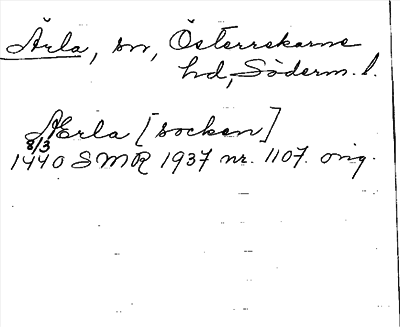 Ärla, sn, Österrekarne
hd, Söderm. l.
Ærla [socken]
8/3
1440 SMR 1937 nr. 1107. orig.